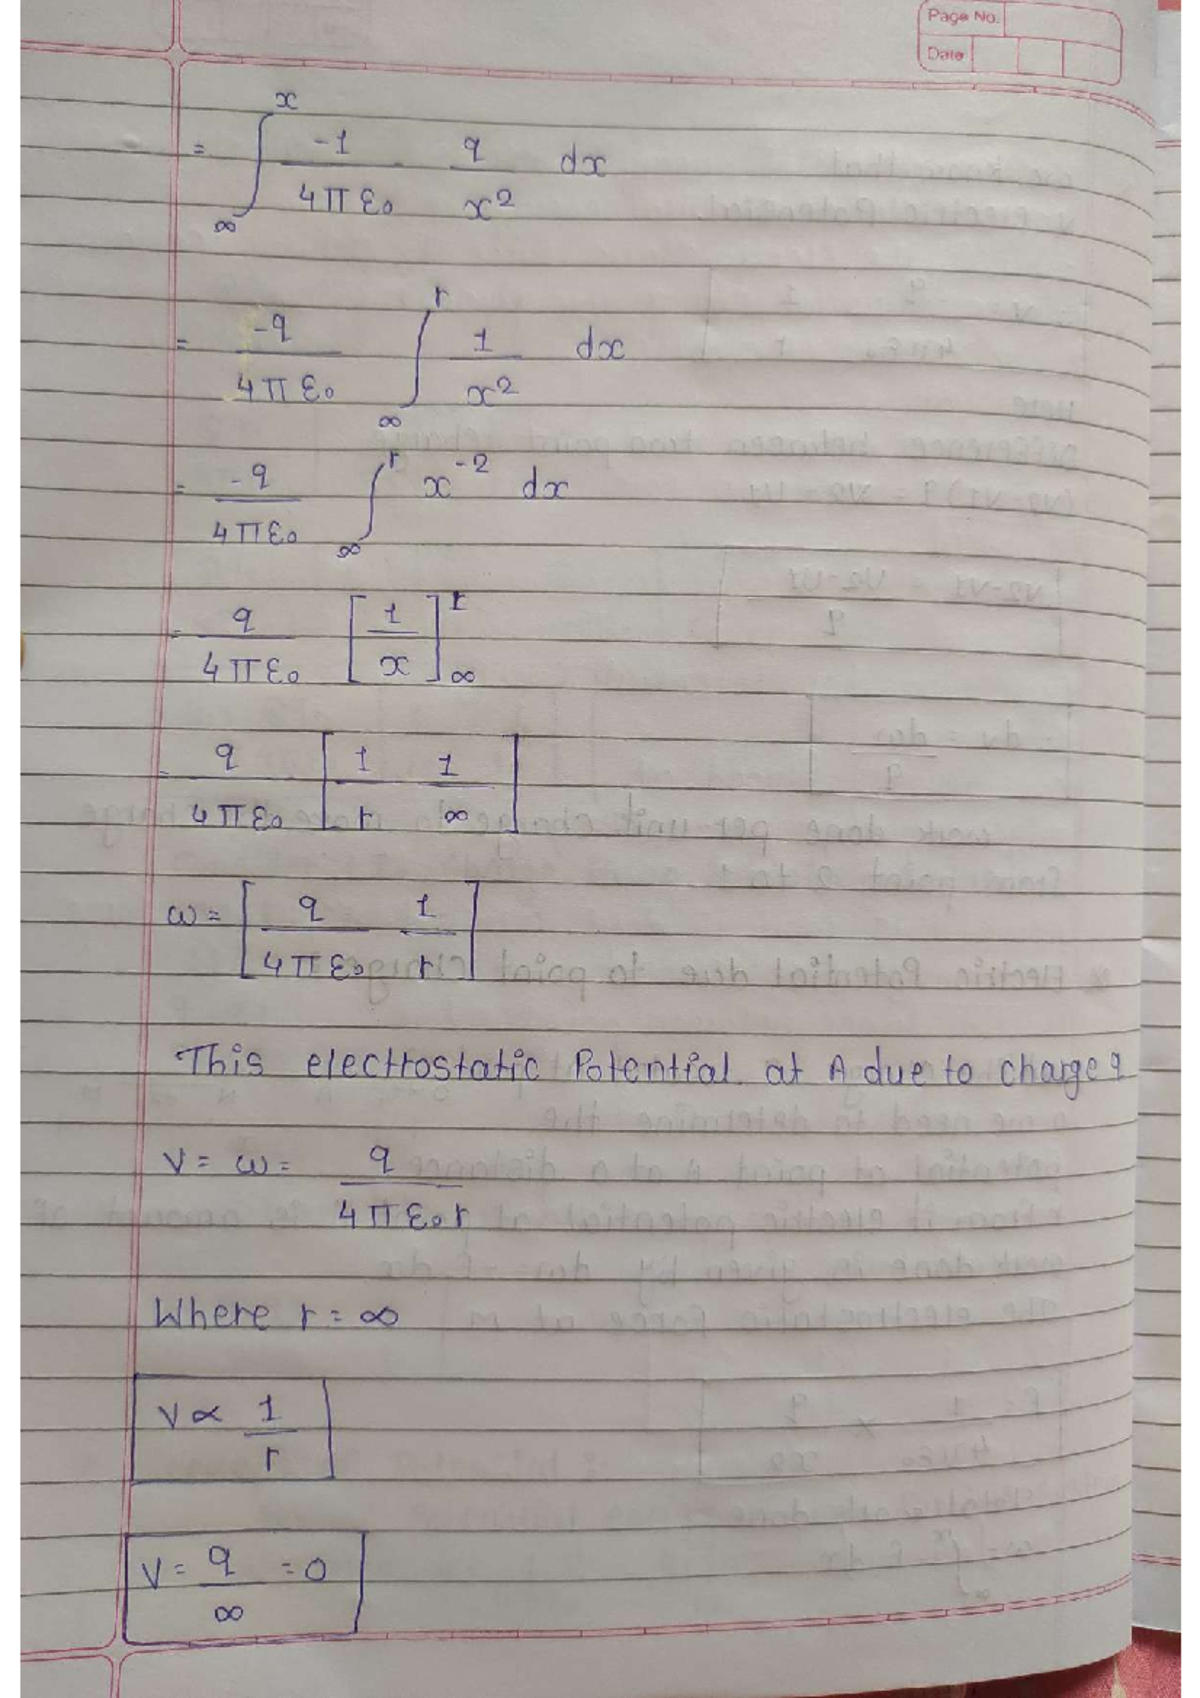 Page No.
Date
= ∫ x ∞ -1/4πε₀ q/x² dx
= -q/4πε₀ ∫ r ∞ 1/x² dx
= -q/4πε₀ ∫ r ∞ x⁻² dx
= q/4πε₀ [1/x] r ∞
q/4πε₀ [1/r 1/∞]
ω = [q/4πε₀ 1/r]
This electrostatic Potential at A due to charge q
V = ω = q/4πε₀r
Where r = ∞
V ∝ 1/r
V = q/∞ = 0